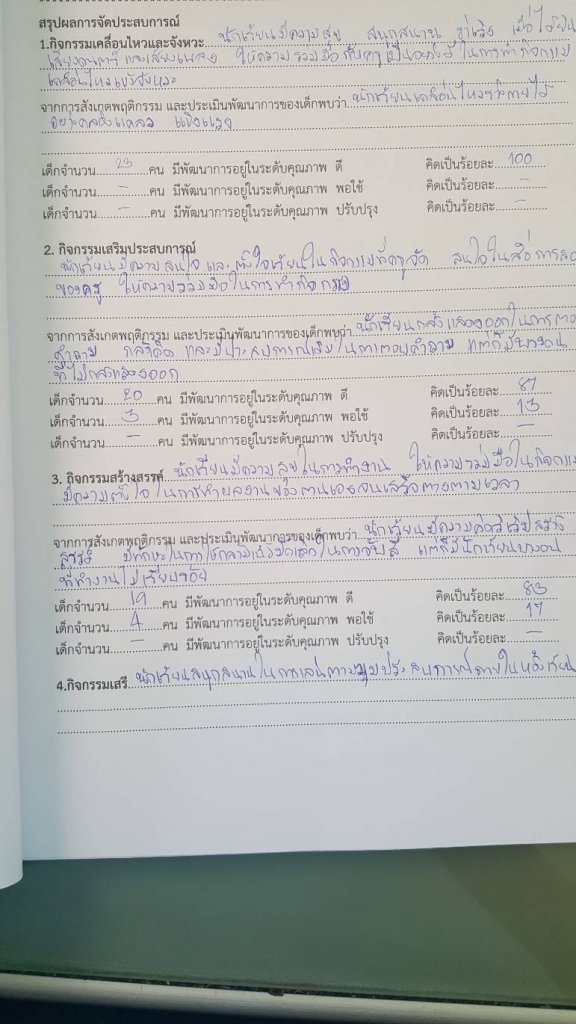 สรุปผลการจัดประสบการณ์
1.กิจกรรมเคลื่อนไหวและจังหวะ นักเรียนมีความสุข สนุกสนาน ร่าเริง เมื่อได้ยิน
เสียงดนตรีและเสียงเพลง ให้ความร่วมมือกับครูเป็นอย่างดี ในการทำกิจกรรม
เคลื่อนไหวและจังหวะ
จากการสังเกตพฤติกรรม และประเมินพัฒนาการของเด็กพบว่า นักเรียนเคลื่อนไหวร่างกายได้
อย่างคล่องแคล่ว แข็งแรง
เด็กจำนวน 23 คน มีพัฒนาการอยู่ในระดับคุณภาพ ดี คิดเป็นร้อยละ 100
เด็กจำนวน - คน มีพัฒนาการอยู่ในระดับคุณภาพ พอใช้ คิดเป็นร้อยละ -
เด็กจำนวน - คน มีพัฒนาการอยู่ในระดับคุณภาพ ปรับปรุง คิดเป็นร้อยละ -
2. กิจกรรมเสริมประสบการณ์
นักเรียนมีความสนใจ และตั้งใจเรียนในกิจกรรมที่ครูจัด สนใจในสื่อการสอ
ของครู ให้ความร่วมมือในการทำกิจกรรม
จากการสังเกตพฤติกรรม และประเมินพัฒนาการของเด็กพบว่า นักเรียนกล้าแสดงออกในการตอบ
คำถาม กล้าคิด และมีประสบการณ์เดิมในการตอบคำถาม แต่ก็มีบางคน
ที่ไม่กล้าแสดงออก
เด็กจำนวน 20 คน มีพัฒนาการอยู่ในระดับคุณภาพ ดี คิดเป็นร้อยละ 87
เด็กจำนวน 3 คน มีพัฒนาการอยู่ในระดับคุณภาพ พอใช้ คิดเป็นร้อยละ 13
เด็กจำนวน - คน มีพัฒนาการอยู่ในระดับคุณภาพ ปรับปรุง คิดเป็นร้อยละ -
3. กิจกรรมสร้างสรรค์ นักเรียนมีความสุขในการทำงาน ให้ความร่วมมือในกิจกรรม
มีความตั้งใจในการทำผลงานของตนเองจนเสร็จตามเวลา
จากการสังเกตพฤติกรรม และประเมินพัฒนาการของเด็กพบว่า นักเรียนมีความคิดริเริ่มสร้าง
สรรค์ มีทักษะในการใช้กล้ามเนื้อมัดเล็กในการจับสี แต่ก็มีนักเรียนบางคน
ที่ทำงานไม่เรียบร้อย
เด็กจำนวน 19 คน มีพัฒนาการอยู่ในระดับคุณภาพ ดี คิดเป็นร้อยละ 83
เด็กจำนวน 4 คน มีพัฒนาการอยู่ในระดับคุณภาพ พอใช้ คิดเป็นร้อยละ 17
เด็กจำนวน - คน มีพัฒนาการอยู่ในระดับคุณภาพ ปรับปรุง คิดเป็นร้อยละ -
4.กิจกรรมเสรี นักเรียนสนุกสนานในการเล่นตามมุมประสบการณ์ภายในห้องเรียน